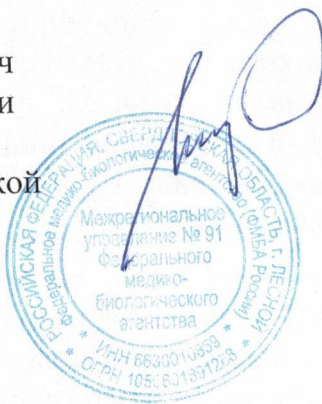 ч
и
кой
РОССИЙСКАЯ ФЕДЕРАЦИЯ, СВЕРДЛОВСКАЯ ОБЛАСТЬ, г. ЛЕСНОЙ
Федеральное медико-биологическое агентство (ФМБА России)
Межрегиональное
управление № 91
Федерального
медико-
биологического
агентства
ИНН
ОГРН